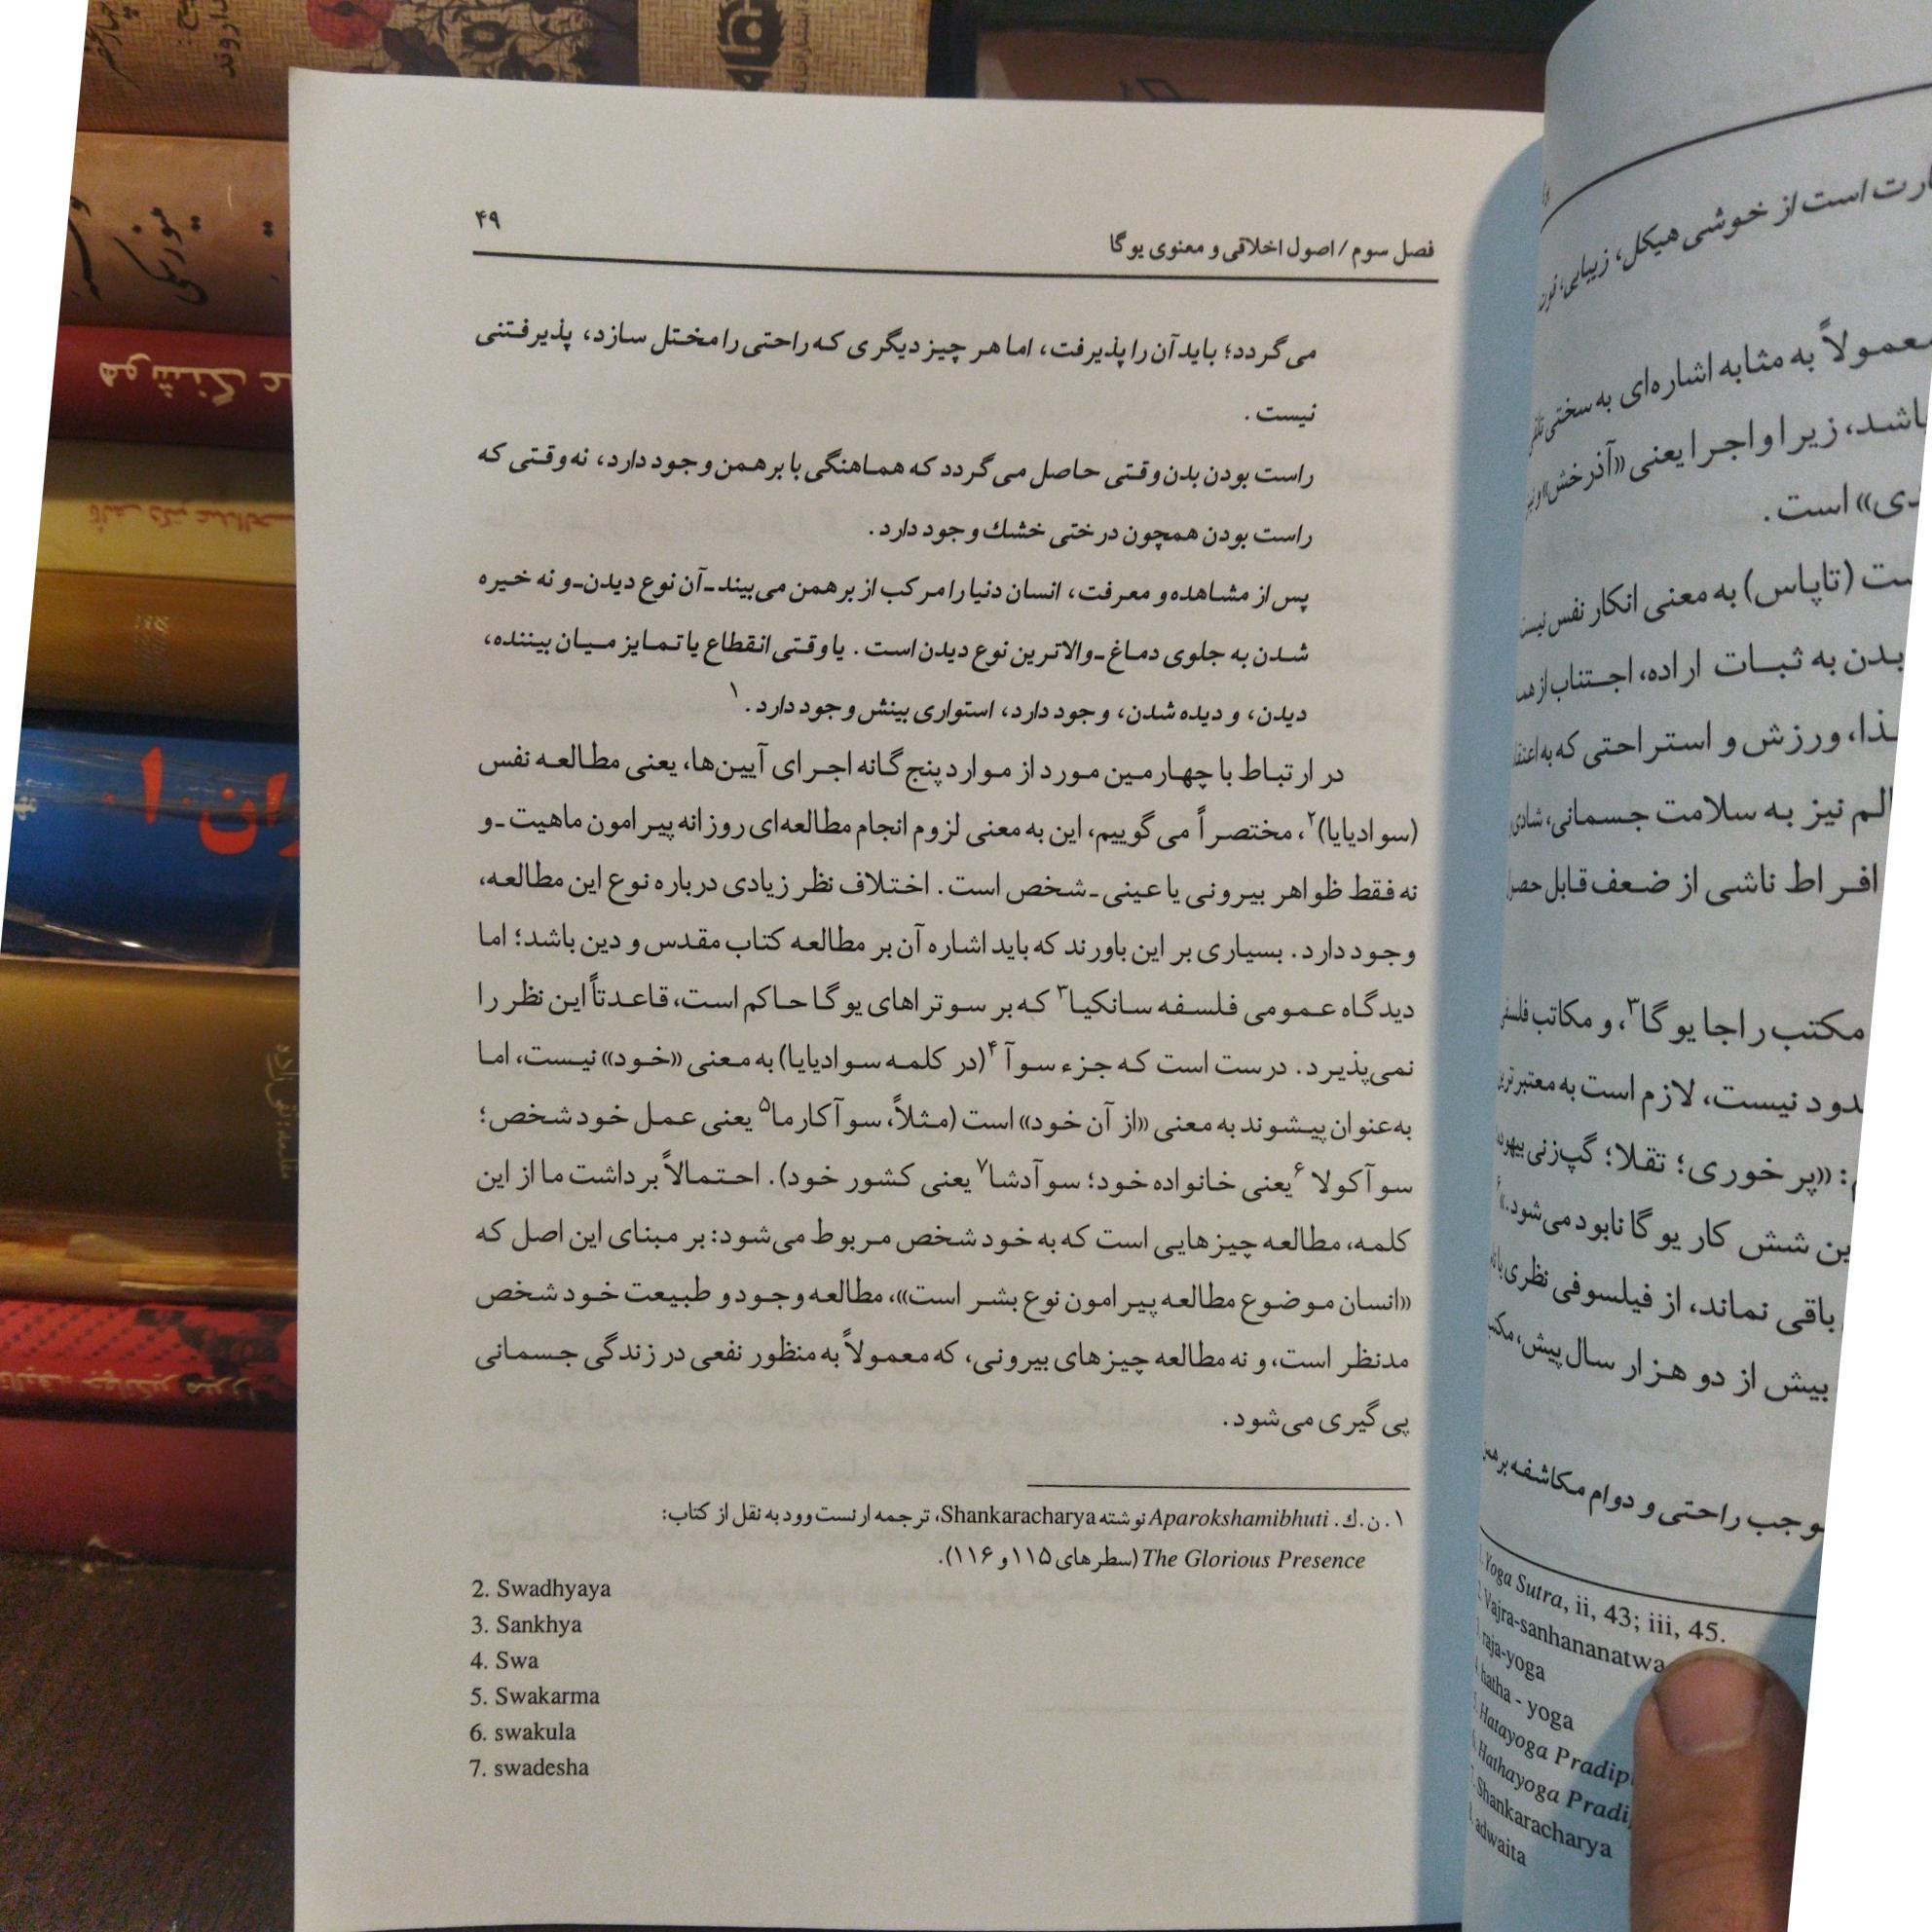 ۴۹
فصل سوم / اصول اخلاقی و معنوی یوگا
می‌گردد؛ باید آن را پذیرفت، اما هر چیز دیگری که راحتی را مختل سازد، پذیرفتنی
نیست.
راست بودن بدن وقتی حاصل می‌گردد که هماهنگی با برهمن وجود دارد، نه وقتی که
راست بودن همچون درختی خشك وجود دارد.
پس از مشاهده و معرفت، انسان دنیا را مرکب از برهمن می‌بیند ـ آن نوع دیدن ـ و نه خیره
شدن به جلوی دماغ ـ والاترین نوع دیدن است. یا وقتی انقطاع یا تمایز میان بیننده،
دیدن، و دیده شدن، وجود دارد، استواری بینش وجود دارد.۱
در ارتباط با چهارمین مورد از موارد پنج گانه اجرای آیین‌ها، یعنی مطالعه نفس
(سوادیایا)۲، مختصراً می‌گوییم، این به معنی لزوم انجام مطالعه‌ای روزانه پیرامون ماهیت ـ و
نه فقط ظواهر بیرونی یا عینی ـ شخص است. اختلاف نظر زیادی درباره نوع این مطالعه،
وجود دارد. بسیاری بر این باورند که باید اشاره آن بر مطالعه کتاب مقدس و دین باشد؛ اما
دیدگاه عمومی فلسفه سانکیا۳ که بر سوتراهای یوگا حاکم است، قاعدتاً این نظر را
نمی‌پذیرد. درست است که جزء سوآ ۴(در کلمه سوادیایا) به معنی «خود» نیست، اما
به‌عنوان پیشوند به معنی «از آن خود» است (مثلاً، سوآکارما۵ یعنی عمل خود شخص؛
سوآکولا ۶یعنی خانواده خود؛ سوآدشا۷ یعنی کشور خود). احتمالاً برداشت ما از این
کلمه، مطالعه چیزهایی است که به خود شخص مربوط می‌شود: بر مبنای این اصل که
«انسان موضوع مطالعه پیرامون نوع بشر است»، مطالعه وجود و طبیعت خود شخص
مدنظر است، و نه مطالعه چیزهای بیرونی، که معمولاً به منظور نفعی در زندگی جسمانی
پی گیری می‌شود.
۱. ن.ك. Aparokshamibhuti نوشته Shankaracharya، ترجمه ارنست وود به نقل از کتاب:
The Glorious Presence (سطرهای ۱۱۵ و ۱۱۶).
2. Swadhyaya
3. Sankhya
4. Swa
5. Swakarma
6. swakula
7. swadesha
ارت است از خوشی هیکل، زیبایی،
معمولاً به مثابه اشاره‌ای به سختی
باشد، زیرا واجرا یعنی «آذرخش»
دی» است.
ست (تاپاس) به معنی انکار نفس نیست
بدن به ثبات اراده، اجتناب از
ذا، ورزش و استراحتی که به
الم نیز به سلامت جسمانی، شادی
افراط ناشی از ضعف قابل
مکتب راجا یوگا۳، و مکاتب
دود نیست، لازم است به معتبرترین
: «پرخوری؛ تقلا؛ گپ‌زنی
ین شش کار یوگا نابود می‌شود.»
باقی نماند، از فیلسوفی نظری
بیش از دو هزار سال پیش،
موجب راحتی و دوام مکاشفه
1. Yoga Sutra, ii, 43; iii, 45.
2. Vajra-sanhananatwa
3. raja-yoga
4. hatha - yoga
5. Hatayoga Pradip
6. Hathayoga Pradi
7. Shankaracharya
8. adwaita